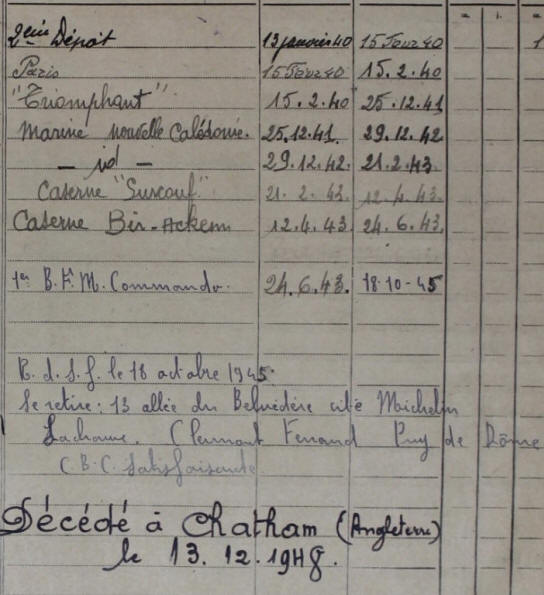 2ème Dépôt 13 janvier 40 15 Févr 40
Paris 15 Févr 40 15.2.40
"Triomphant" 15.2.40 25.12.41
Marine nouvelle Calédonie. 25.12.41. 29.12.42
— id — 29.12.42. 21.2.43
Caserne "Surcouf" 21.2.43. 12.4.43.
Caserne Bir-Ackem 12.4.43 24.6.43.
1er B.F.M. Commando. 24.6.43. 18-10-45
R.d.s.f. le 18 octobre 1945
Se retire: 13 allée du Belvédère cité Michelin
Lachaux. Clermont Ferrand Puy de Dôme
C.B.C. Satisfaisante
Décédé à Chatham (Angleterre)
le 13.12.1948.